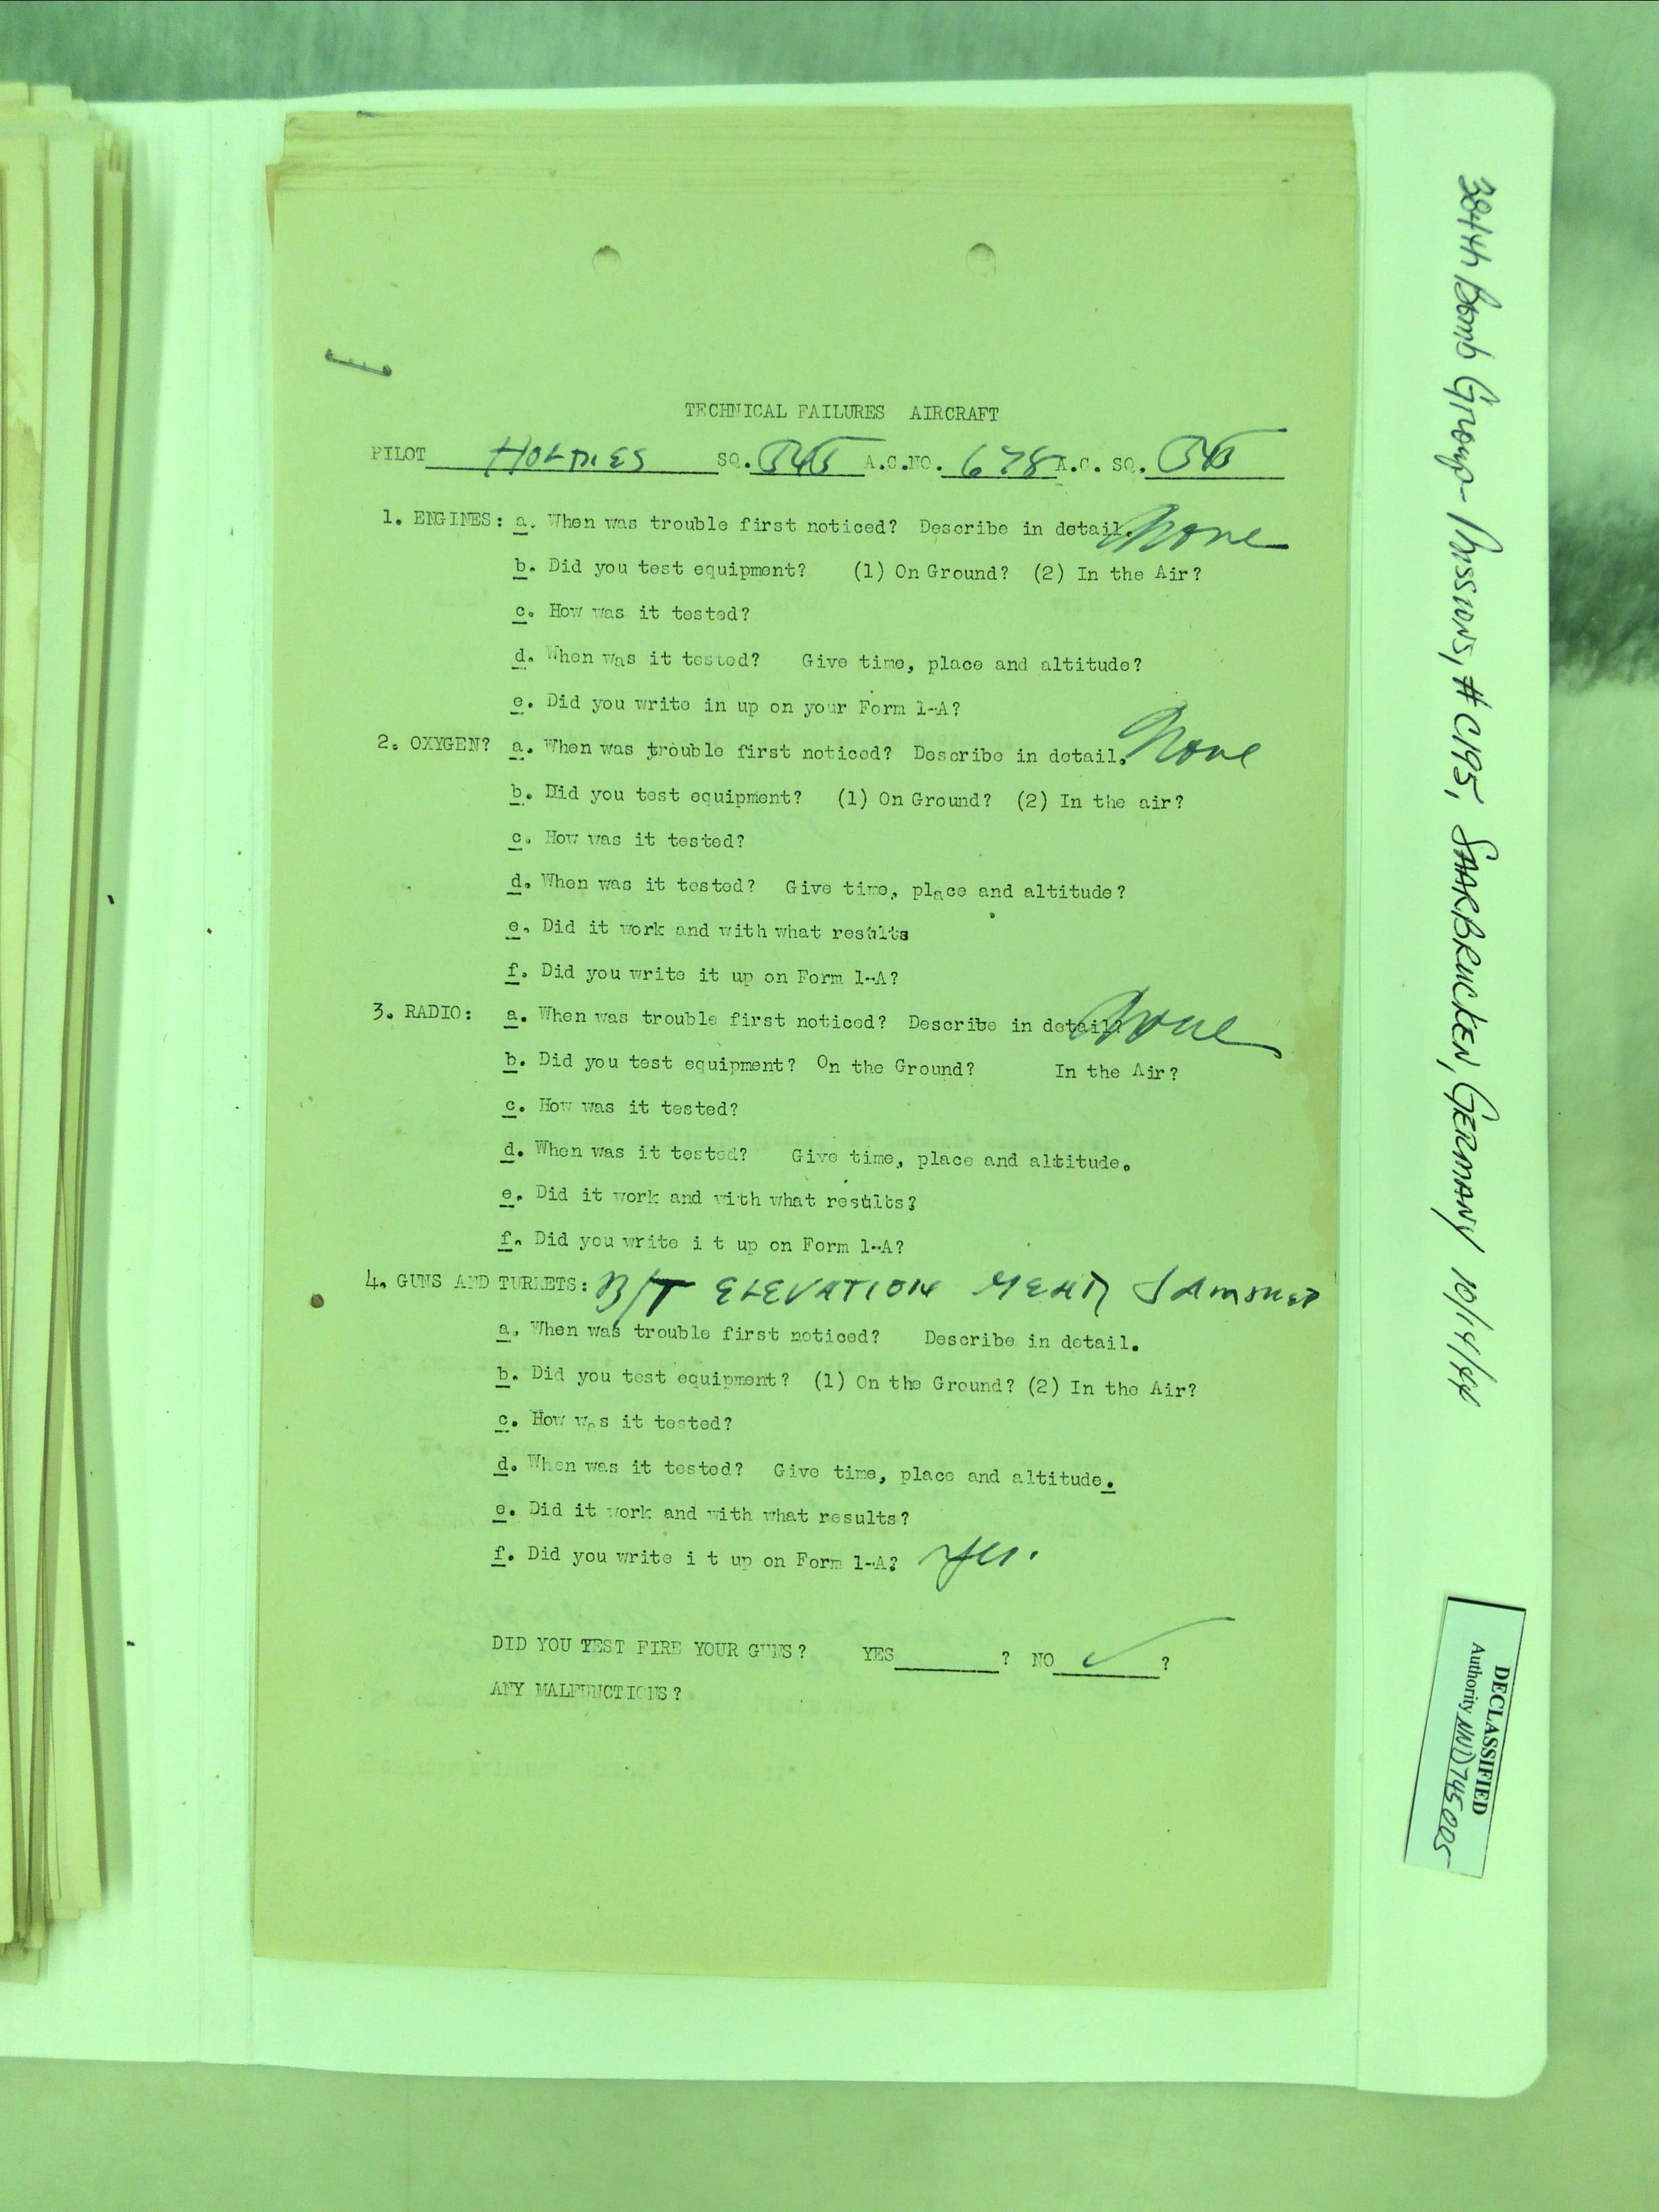 TECHNICAL FAILURES AIRCRAFT
PILOT SQ. A.C.NO. 678 A.C. SQ.
1. ENGINES: a. When was trouble first noticed? Describe in detail. None
b. Did you test equipment? (1) On Ground? (2) In the Air?
c. How was it tested?
d. When was it tested? Give time, place and altitude?
e. Did you write in up on your Form 1-A?
2. OXYGEN? a. When was trouble first noticed? Describe in detail. None
b. Did you test equipment? (1) On Ground? (2) In the air?
c. How was it tested?
d. When was it tested? Give time, place and altitude?
e. Did it work and with what results
f. Did you write it up on Form 1-A?
3. RADIO: a. When was trouble first noticed? Describe in detail? None
b. Did you test equipment? On the Ground? In the Air?
c. How was it tested?
d. When was it tested? Give time, place and altitude.
e. Did it work and with what results?
f. Did you write i t up on Form 1-A?
4. GUNS AND TURRETS: B/T ELEVATION
a. When was trouble first noticed? Describe in detail.
b. Did you test equipment? (1) On the Ground? (2) In the Air?
c. How was it tested?
d. When was it tested? Give time, place and altitude.
e. Did it work and with what results?
f. Did you write i t up on Form 1-A? Yes.
DID YOU TEST FIRE YOUR GUNS? YES ? NO ✓ ?
ANY MALFUNCTIONS?
384th Bomb Group - Missions, # C195, SAARBRUCKEN, GERMANY 10/14/44
DECLASSIFIED
Authority NND745005